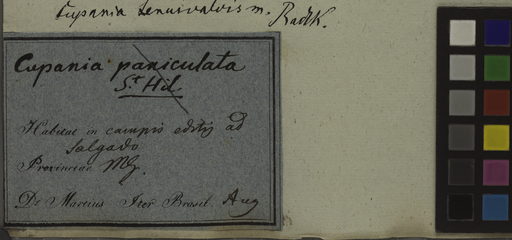 Cupania tenuivalvis m. Radlk.
Cupania paniculata
St Hil
Habitat in campis editis ad
Salgado
Provinciae MG.
De Martius Iter Brasil. Aug